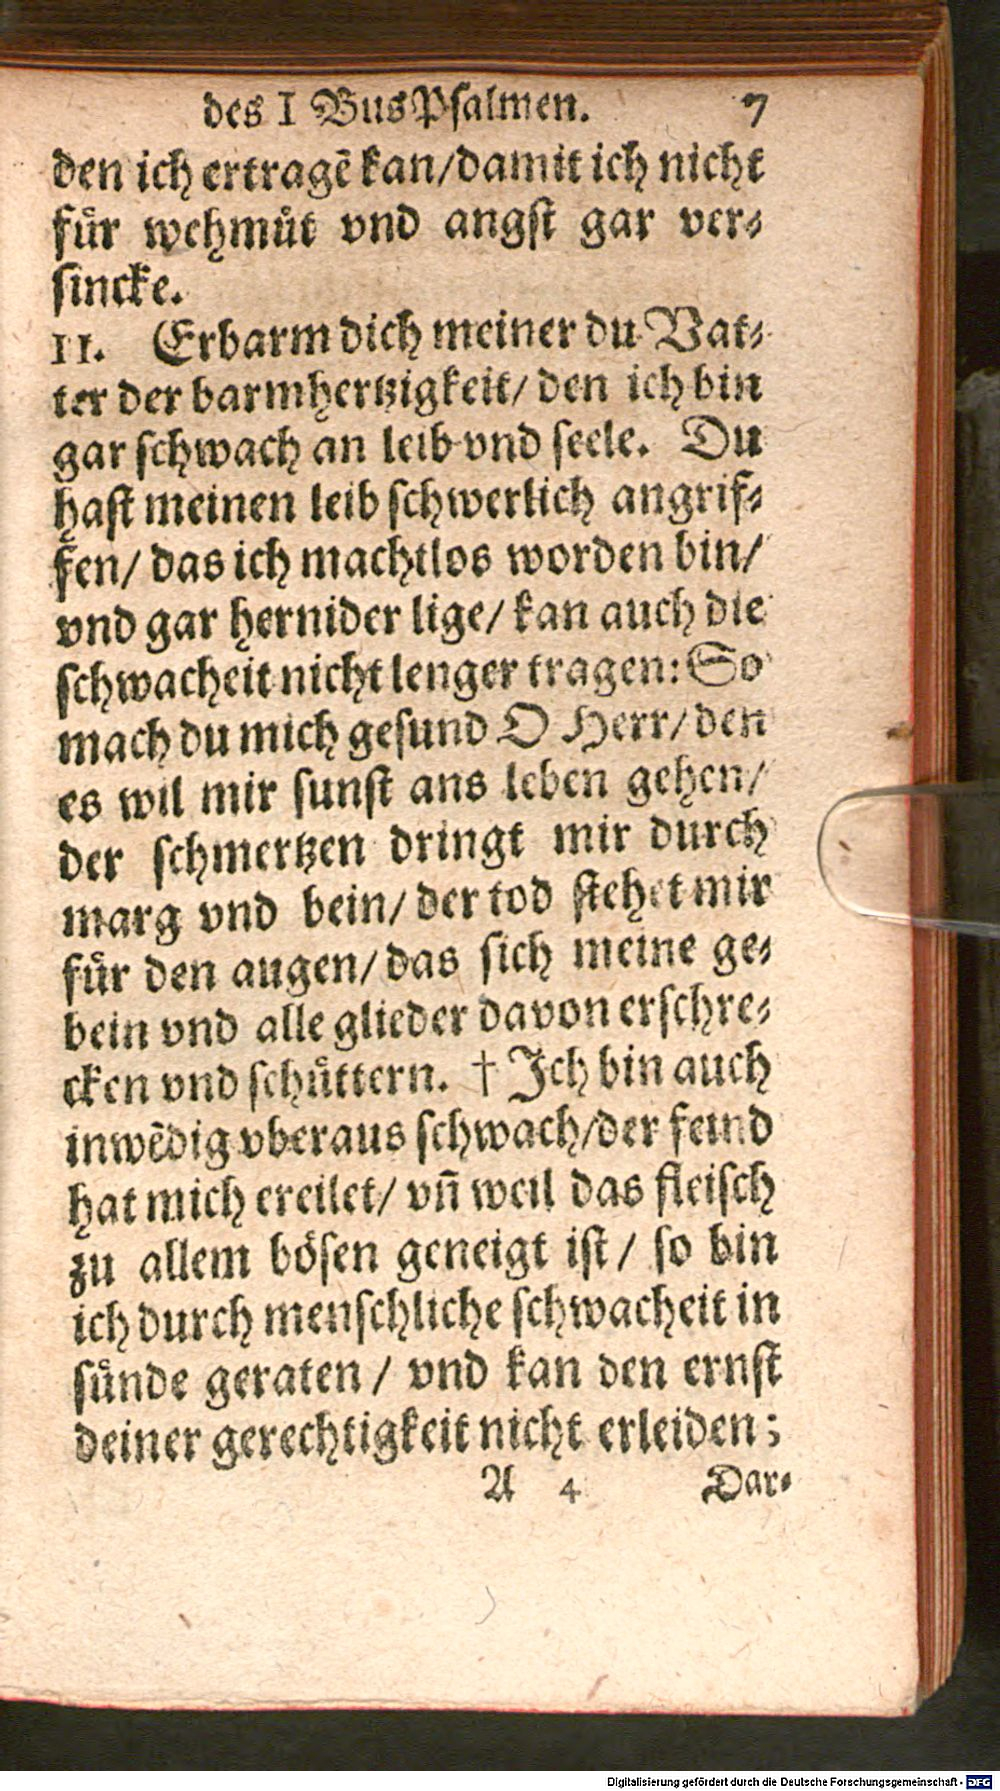 des I BusPsalmen. 7
den ich ertragē kan/damit ich nicht
fuͤr wehmuͤt vnd angst gar ver-
sincke.
II. Erbarm dich meiner du Vat-
ter der barmhertzigkeit/ den ich bin
gar schwach an leib vnd seele. Du
hast meinen leib schwerlich angrif-
fen/ das ich machtlos worden bin/
vnd gar hernider lige/ kan auch die
schwacheit nicht lenger tragen: So
mach du mich gesund O Herr/ den
es wil mir sunst ans leben gehen/
der schmertzen dringt mir durch
marg vnd bein/ der tod stehet mir
fuͤr den augen/ das sich meine ge-
bein vnd alle glieder davon erschre-
cken vnd schuͤttern. † Ich bin auch
inwēdig vberaus schwach/der feind
hat mich ereilet/ vn̄ weil das fleisch
zu allem boͤsen geneigt ist/ so bin
ich durch menschliche schwacheit in
suͤnde geraten/ vnd kan den ernst
deiner gerechtigkeit nicht erleiden;
A 4 Dar-
Digitalisierung gefördert durch die Deutsche Forschungsgemeinschaft - DFG